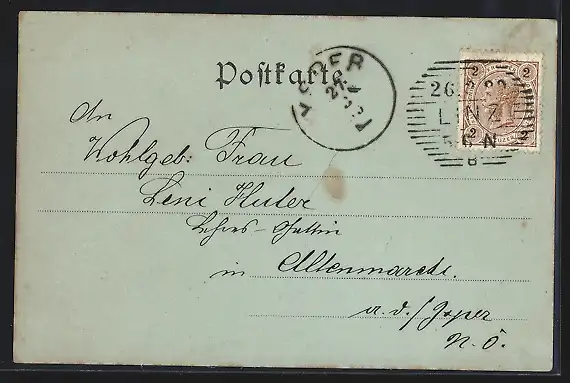 Postkarte
YSPER
27
26
LINZ
5-6 N
8
2 2
2 2
An
Wohlgeb: Frau
Leni Huter
Lehrers-Gattin
in Altenmarkt
a. d./Ysper
N. Ö.